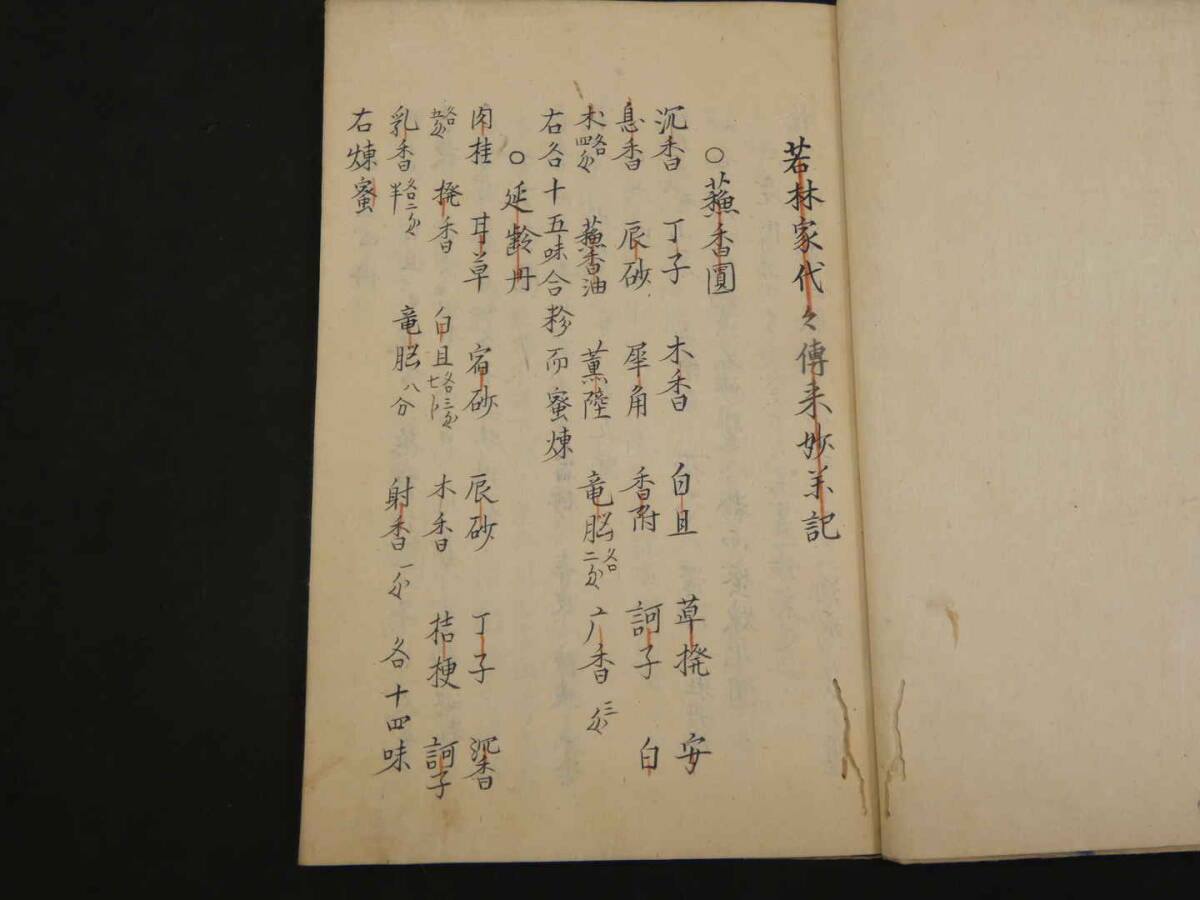 若林家代々傳来妙羊記
○蘓香圓
沉香 丁子 木香 白且 草撥 安
息香 辰砂 犀角 香附 訶子 白
木 各四匁 蘓香油 薫陸 竜脳 各二匁 广香 三匁
右各十五味合粉而蜜煉
○延齢丹
肉桂 甘草 宿砂 辰砂 丁子 沉香
各五匁 撥香 白且 各三匁七卜 木香 桔梗 訶子
乳香 各二匁半 竜脳 八分 射香 一匁 各十四味
右煉蜜